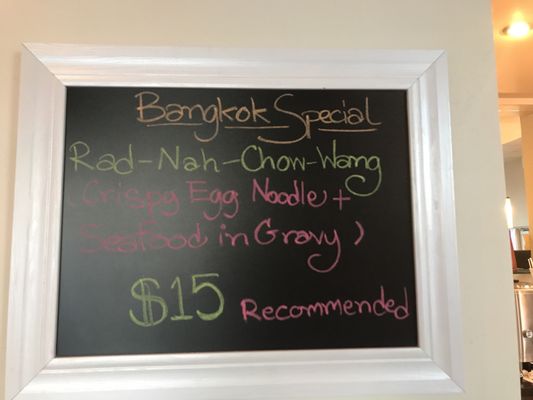 Bangkok Special
Rad-Nah-Chow-Wang
(Crispy Egg Noodle +
Seafood in Gravy)
$15 Recommended